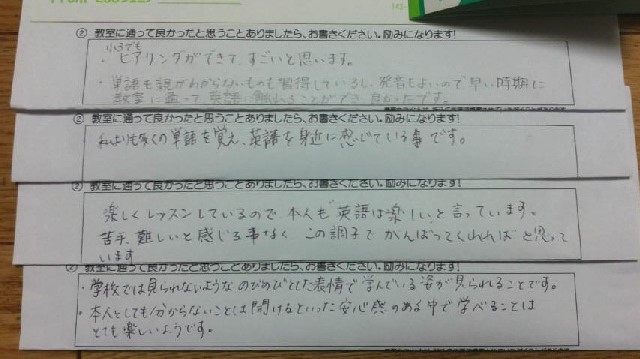 ② 教室に通って良かったと思うことありましたら、お書きください。励みになります!
・ヒアリングができて、すごいと思います。
・単語も親がわからないものも習得しているし、発音もよいので早い時期に
教室に通って英語に触れることができ良かったです。
② 教室に通って良かったと思うことありましたら、お書きください。励みになります!
私よりも多くの単語を覚え、英語を身近に感じている事です。
② 教室に通って良かったと思うことありましたら、お書きください。励みになります!
楽しくレッスンしているので、本人も"英語は楽しい"と言っています。
苦手、難しいと感じる事なく、この調子でがんばってくれればと思って
います
② 教室に通って良かったと思うことありましたら、お書きください。励みになります!
・学校では見られないようなのびのびとした表情で学んでいる姿が見られることです。
・本人としても分からないことは聞けるといった安心感のある中で学べることは
とても楽しいようです。